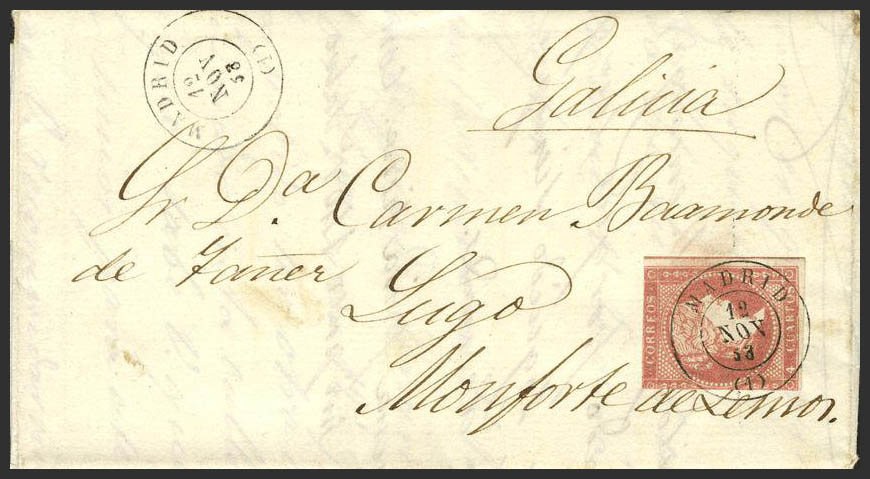 MADRID
12
NOV
58
(1)
Galicia
Sr. D.a Carmen Baamonde
de Tañer
Lugo
Monforte de Lemos.
CORREOS
4 CUARTOS
MADRID
12
NOV
58
(1)